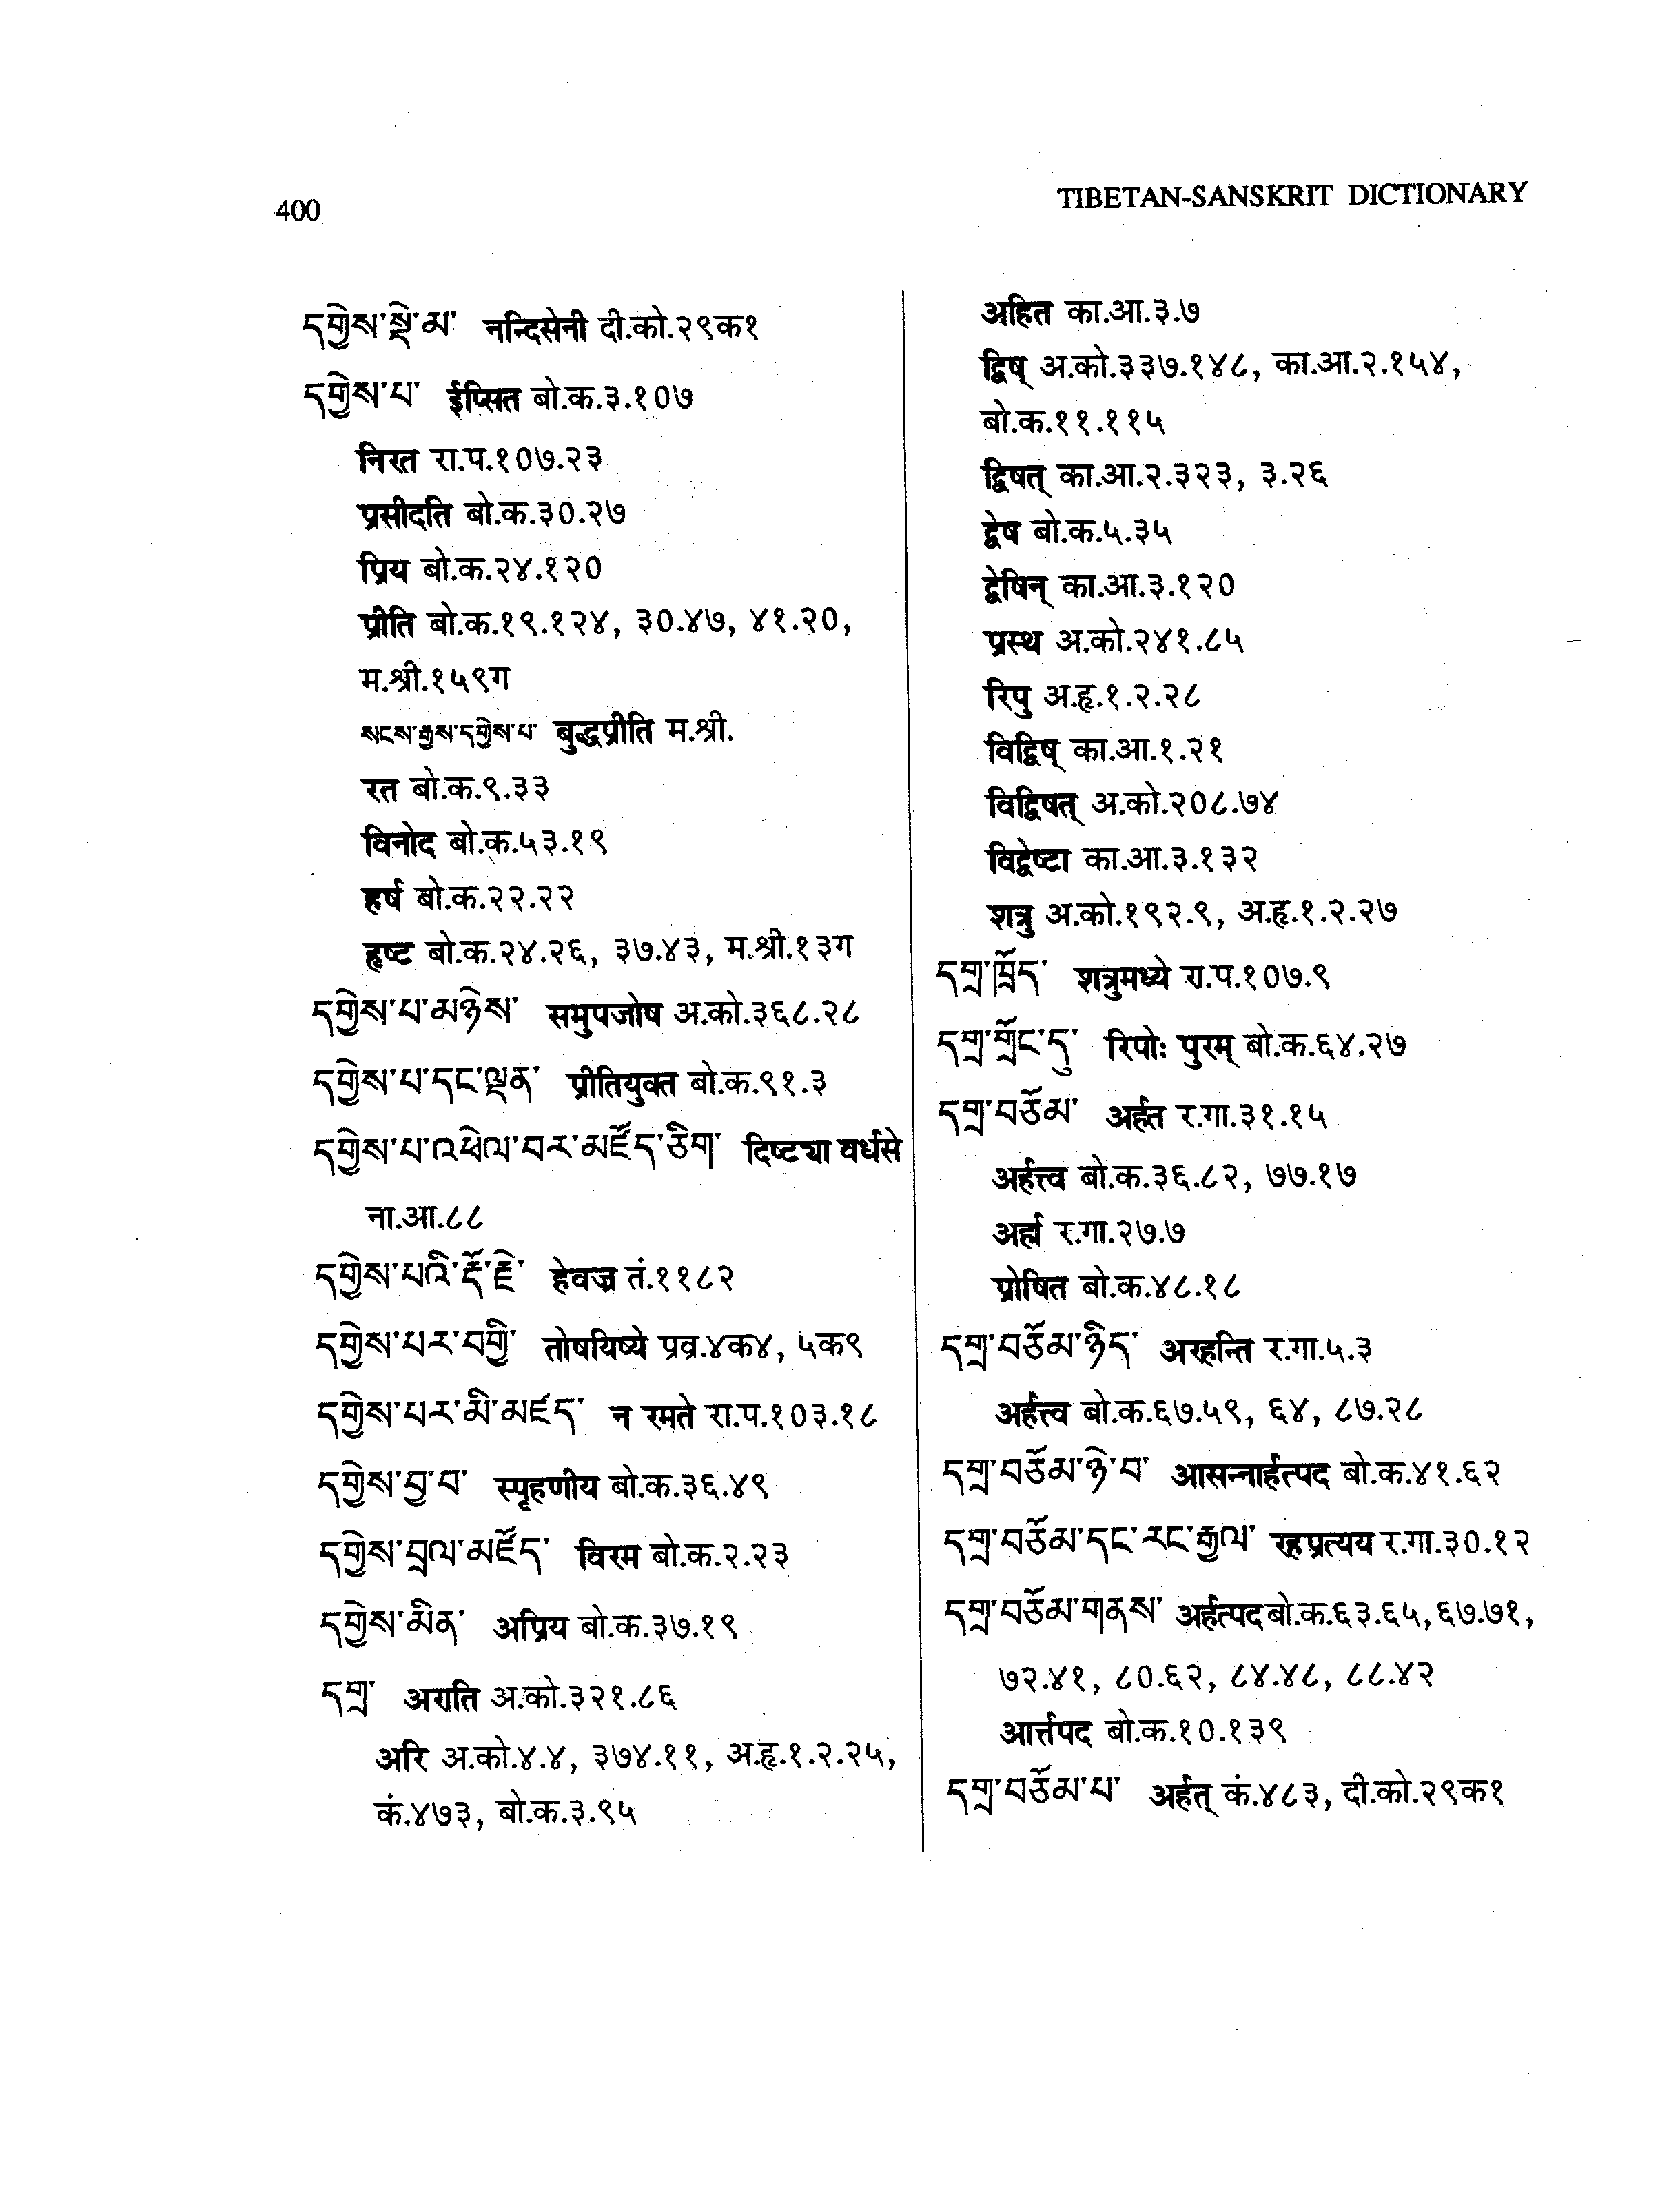 400
TIBETAN-SANSKRIT DICTIONARY
དགྱེས་སྡེ་མ་ नन्दिसेनी दी.को.२९क१
དགྱེས་པ་ ईप्सित बो.क.३.१०७
निरत रा.प.१०७.२३
प्रसीदति बो.क.३०.२७
प्रिय बो.क.२४.१२०
प्रीति बो.क.१९.१२४, ३०.४७, ४१.२०,
म.श्री.१५९ग
སངས་རྒྱས་དགྱེས་པ་ बुद्धप्रीति म.श्री.
रत बो.क.९.३३
विनोद बो.क.५३.१९
हर्ष बो.क.२२.२२
हृष्ट बो.क.२४.२६, ३७.४३, म.श्री.१३ग
དགྱེས་པ་མཉེས་ समुपजोष अ.को.३६८.२८
དགྱེས་པ་དང་ལྡན་ प्रीतियुक्त बो.क.९१.३
དགྱེས་པ་འཕེལ་བར་མཛོད་ཅིག་ दिष्ट्या वर्धसे
ना.आ.८८
དགྱེས་པའི་རྡོ་རྗེ་ हेवज्र तं.११८२
དགྱེས་པར་བགྱི་ तोषयिष्ये प्रव्र.४क४, ५क९
དགྱེས་པར་མི་མཛད་ न रमते रा.प.१०३.१८
དགྱེས་བྱ་བ་ स्पृहणीय बो.क.३६.४९
དགྱེས་བྲལ་མཛོད་ विरम बो.क.२.२३
དགྱེས་མིན་ अप्रिय बो.क.३७.१९
དགྲ་ अराति अ.को.३२१.८६
अरि अ.को.४.४, ३७४.११, अ.हृ.१.२.२५,
कं.४७३, बो.क.३.९५
अहित का.आ.३.७
द्विष् अ.को.३३७.१४८, का.आ.२.१५४,
बो.क.११.११५
द्विषत् का.आ.२.३२३, ३.२६
द्वेष बो.क.५.३५
द्वेषिन् का.आ.३.१२०
प्रस्थ अ.को.२४१.८५
रिपु अ.हृ.१.२.२८
विद्विष् का.आ.१.२१
विद्विषत् अ.को.२०८.७४
विद्वेष्टा का.आ.३.१३२
शत्रु अ.को.१९२.९, अ.हृ.१.२.२७
དགྲ་ཁྲོད་ शत्रुमध्ये रा.प.१०७.९
དགྲ་གྲོང་དུ་ रिपोः पुरम् बो.क.६४.२७
དགྲ་བཅོམ་ अर्हत र.गा.३१.१५
अर्हत्त्व बो.क.३६.८२, ७७.१७
अर्ह्म र.गा.२७.७
प्रोषित बो.क.४८.१८
དགྲ་བཅོམ་ཉིད་ अरहन्ति र.गा.५.३
अर्हत्त्व बो.क.६७.५९, ६४, ८७.२८
དགྲ་བཅོམ་ཉེ་བ་ आसन्नार्हत्पद बो.क.४१.६२
དགྲ་བཅོམ་དང་རང་རྒྱལ་ रहप्रत्यय र.गा.३०.१२
དགྲ་བཅོམ་གནས་ अर्हत्पद बो.क.६३.६५,६७.७१,
७२.४१, ८०.६२, ८४.४८, ८८.४२
आर्त्तपद बो.क.१०.१३९
དགྲ་བཅོམ་པ་ अर्हत् कं.४८३, दी.को.२९क१